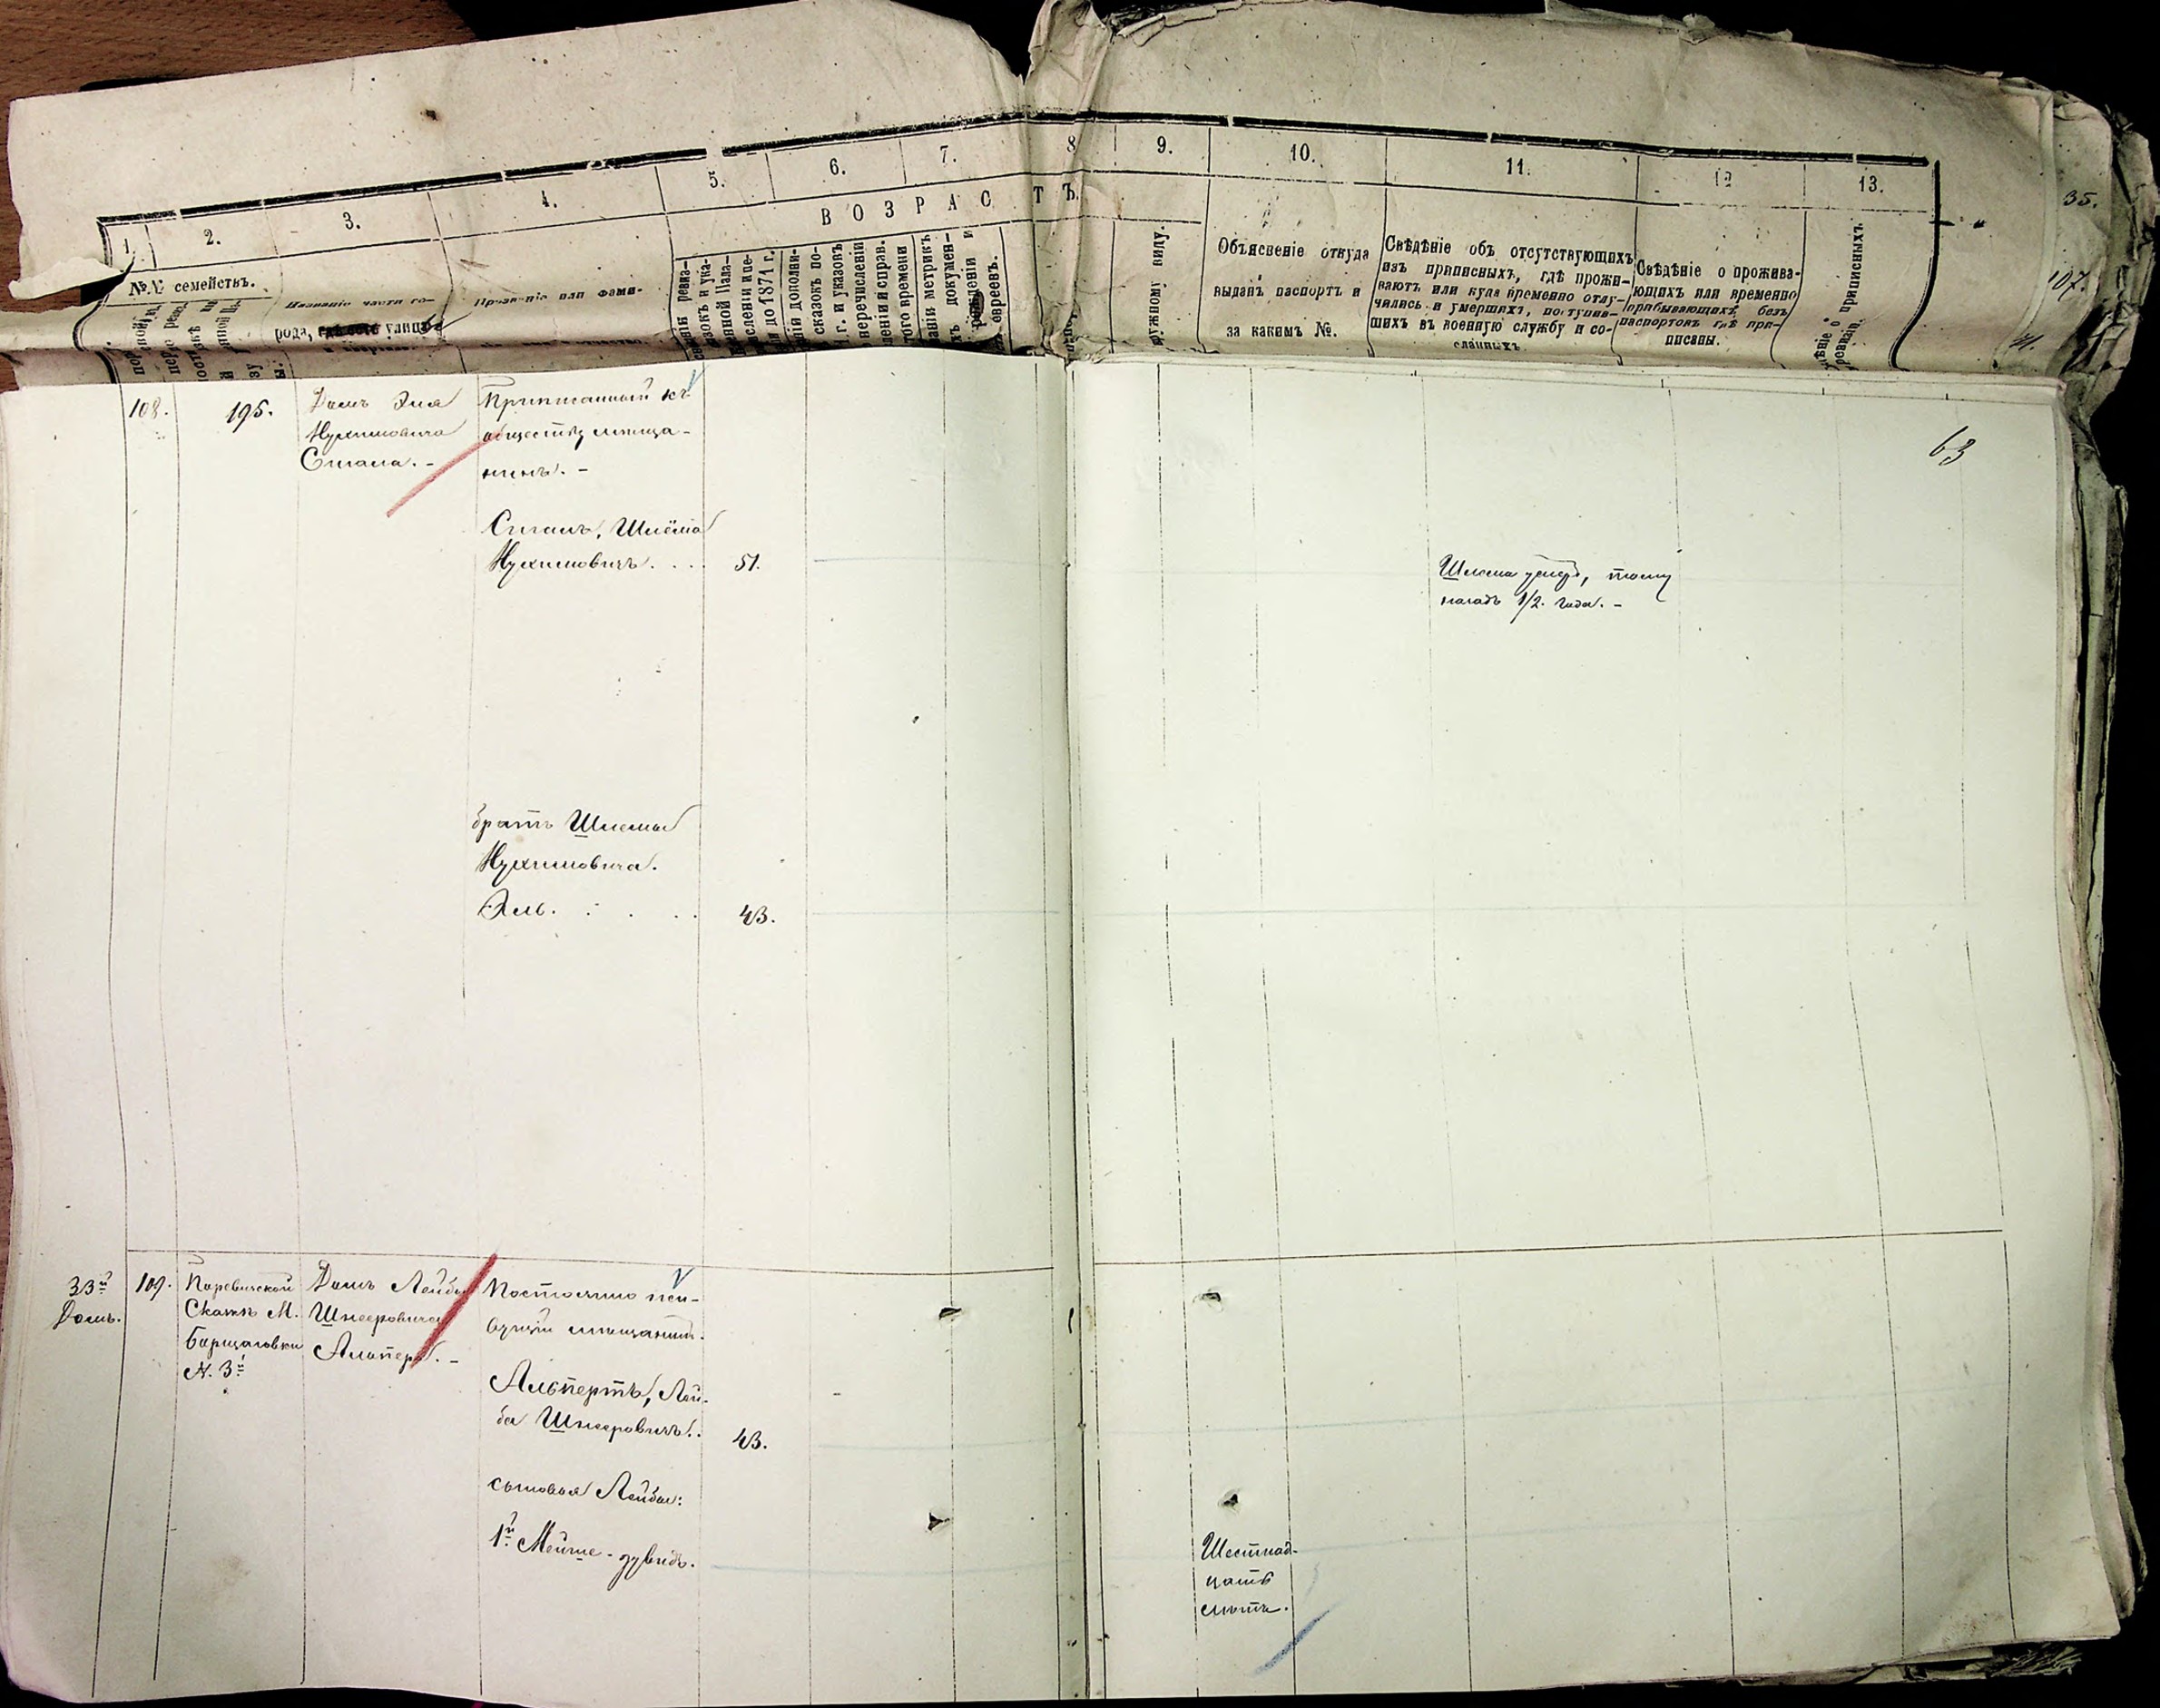 1. 2. 3. 4. 5. 6. 7. 8 9. 10. 11. 12 13.
В О З Р А С Т Ъ.
35.
107.
№№ семействъ.
Названіе части го-
рода, улицы
Прозваніе или фами-
до 1871 г.
Объясненіе откуда
выданъ паспортъ и
за какимъ №.
Свѣдѣніе объ отсутствующихъ
изъ приписныхъ, гдѣ прожи-
ваютъ или куда временно отлу-
чились и умершихъ, поступив-
шихъ въ военную службу и со-
сланныхъ.
Свѣдѣніе о прожива-
ющихъ или временно
прибывающихъ, безъ
паспортовъ гдѣ при-
писаны.
о приписныхъ.
евреевъ.
наружному виду.
63
108.
195.
Домъ Эля
Нухимовича
Сигала. -
Приписанный къ
обществу мѣща-
нинъ. -
Сигалъ, Шлёма
Нухимовичъ. . . .
51.
Шлема умеръ, тому
назадъ 1/2. года. -
братъ Шлемы
Нухимовича.
Эль. . . . .
43.
33й
Домъ.
109.
Паревичской
Сказкѣ М.
Борщаговки
N. 3й
Домъ Лейбы
Шнееровича
Альперъ. -
Постоянно жи-
вущій мѣщанинъ.
Альпертъ, Лей-
ба Шнееровичъ..
43.
сыновья Лейбы:
1й Мейше-дувидъ.
Шестнад-
цать
лѣтъ.